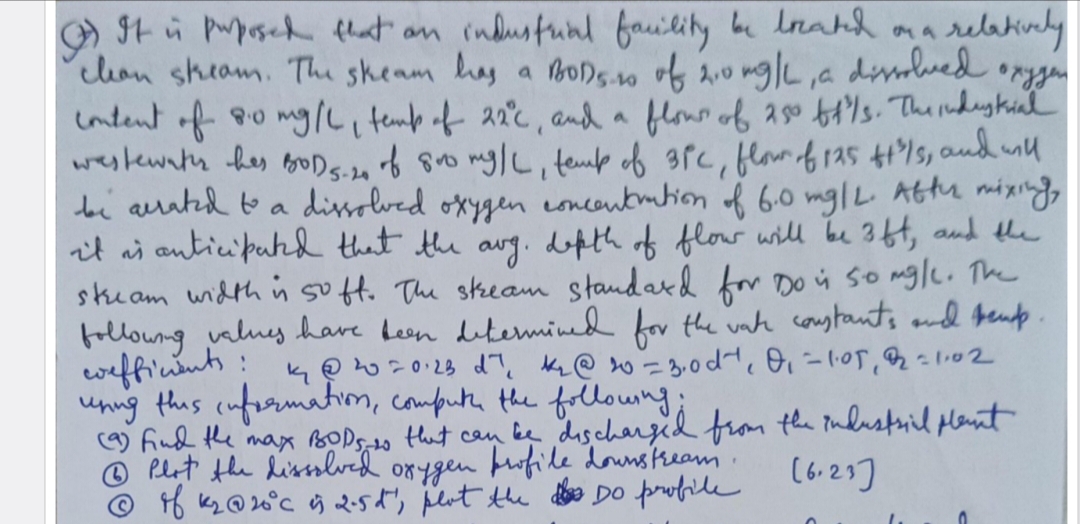 Q) It is purposed that an industrial facility be located on a relatively
clean stream. The stream has a BOD5-20 of 2.0 mg/L, a dissolved oxygen
content of 8.0 mg/L, temp of 22°C, and a flow of 250 ft³/s. The industrial
wastewater has BOD5-20 of 800 mg/L, temp of 31°C, flow of 125 ft³/s, and will
be aerated to a dissolved oxygen concentration of 6.0 mg/L. After mixing,
it is anticipated that the avg. depth of flow will be 3 ft, and the
stream width is 50 ft. The stream standard for DO is 5.0 mg/L. The
following values have been determined for the rate constants and temp.
coefficients : k1 @ 20 = 0.23 d⁻¹, k2 @ 20 = 3.0 d⁻¹, θ1 = 1.05, θ2 = 1.02
using this information, compute the following:
(a) Find the max BOD5-20 that can be discharged from the industrial plant
(b) Plot the dissolved oxygen profile downstream. [6.23]
(c) If k2 @ 20°C is 2.5 d⁻¹, plot the DO profile